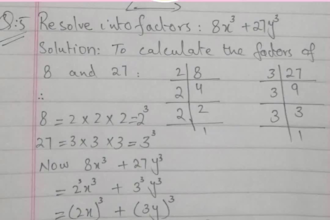 Q:5 Resolve into factors: 8x³ + 27y³
Solution: To calculate the factors of
8 and 27:
2 | 8
2 | 4
2 | 2
1
3 | 27
3 | 9
3 | 3
1
∴
8 = 2 × 2 × 2 = 2³
27 = 3 × 3 × 3 = 3³
Now 8x³ + 27y³
= 2³x³ + 3³y³
= (2x)³ + (3y)³